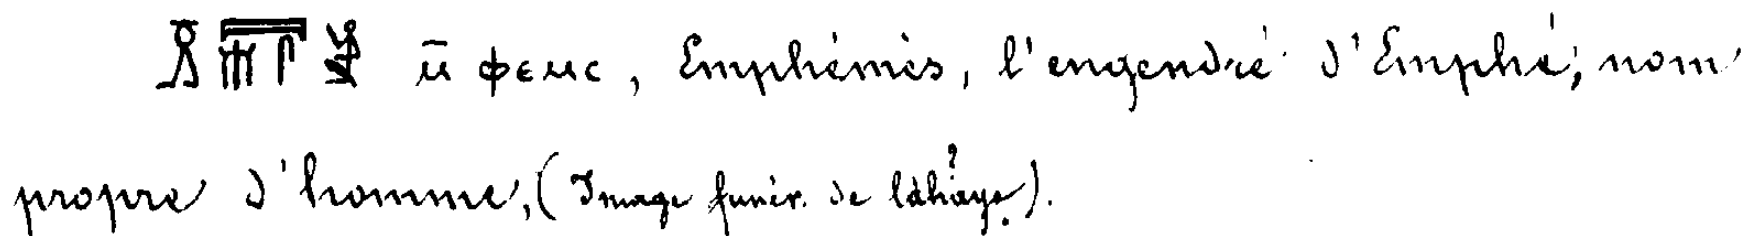 ⲙ̄ ⲫⲉⲙⲥ, Emphémès, l'engendré d'Emphé; nom
propre d'homme, (Image funér. de